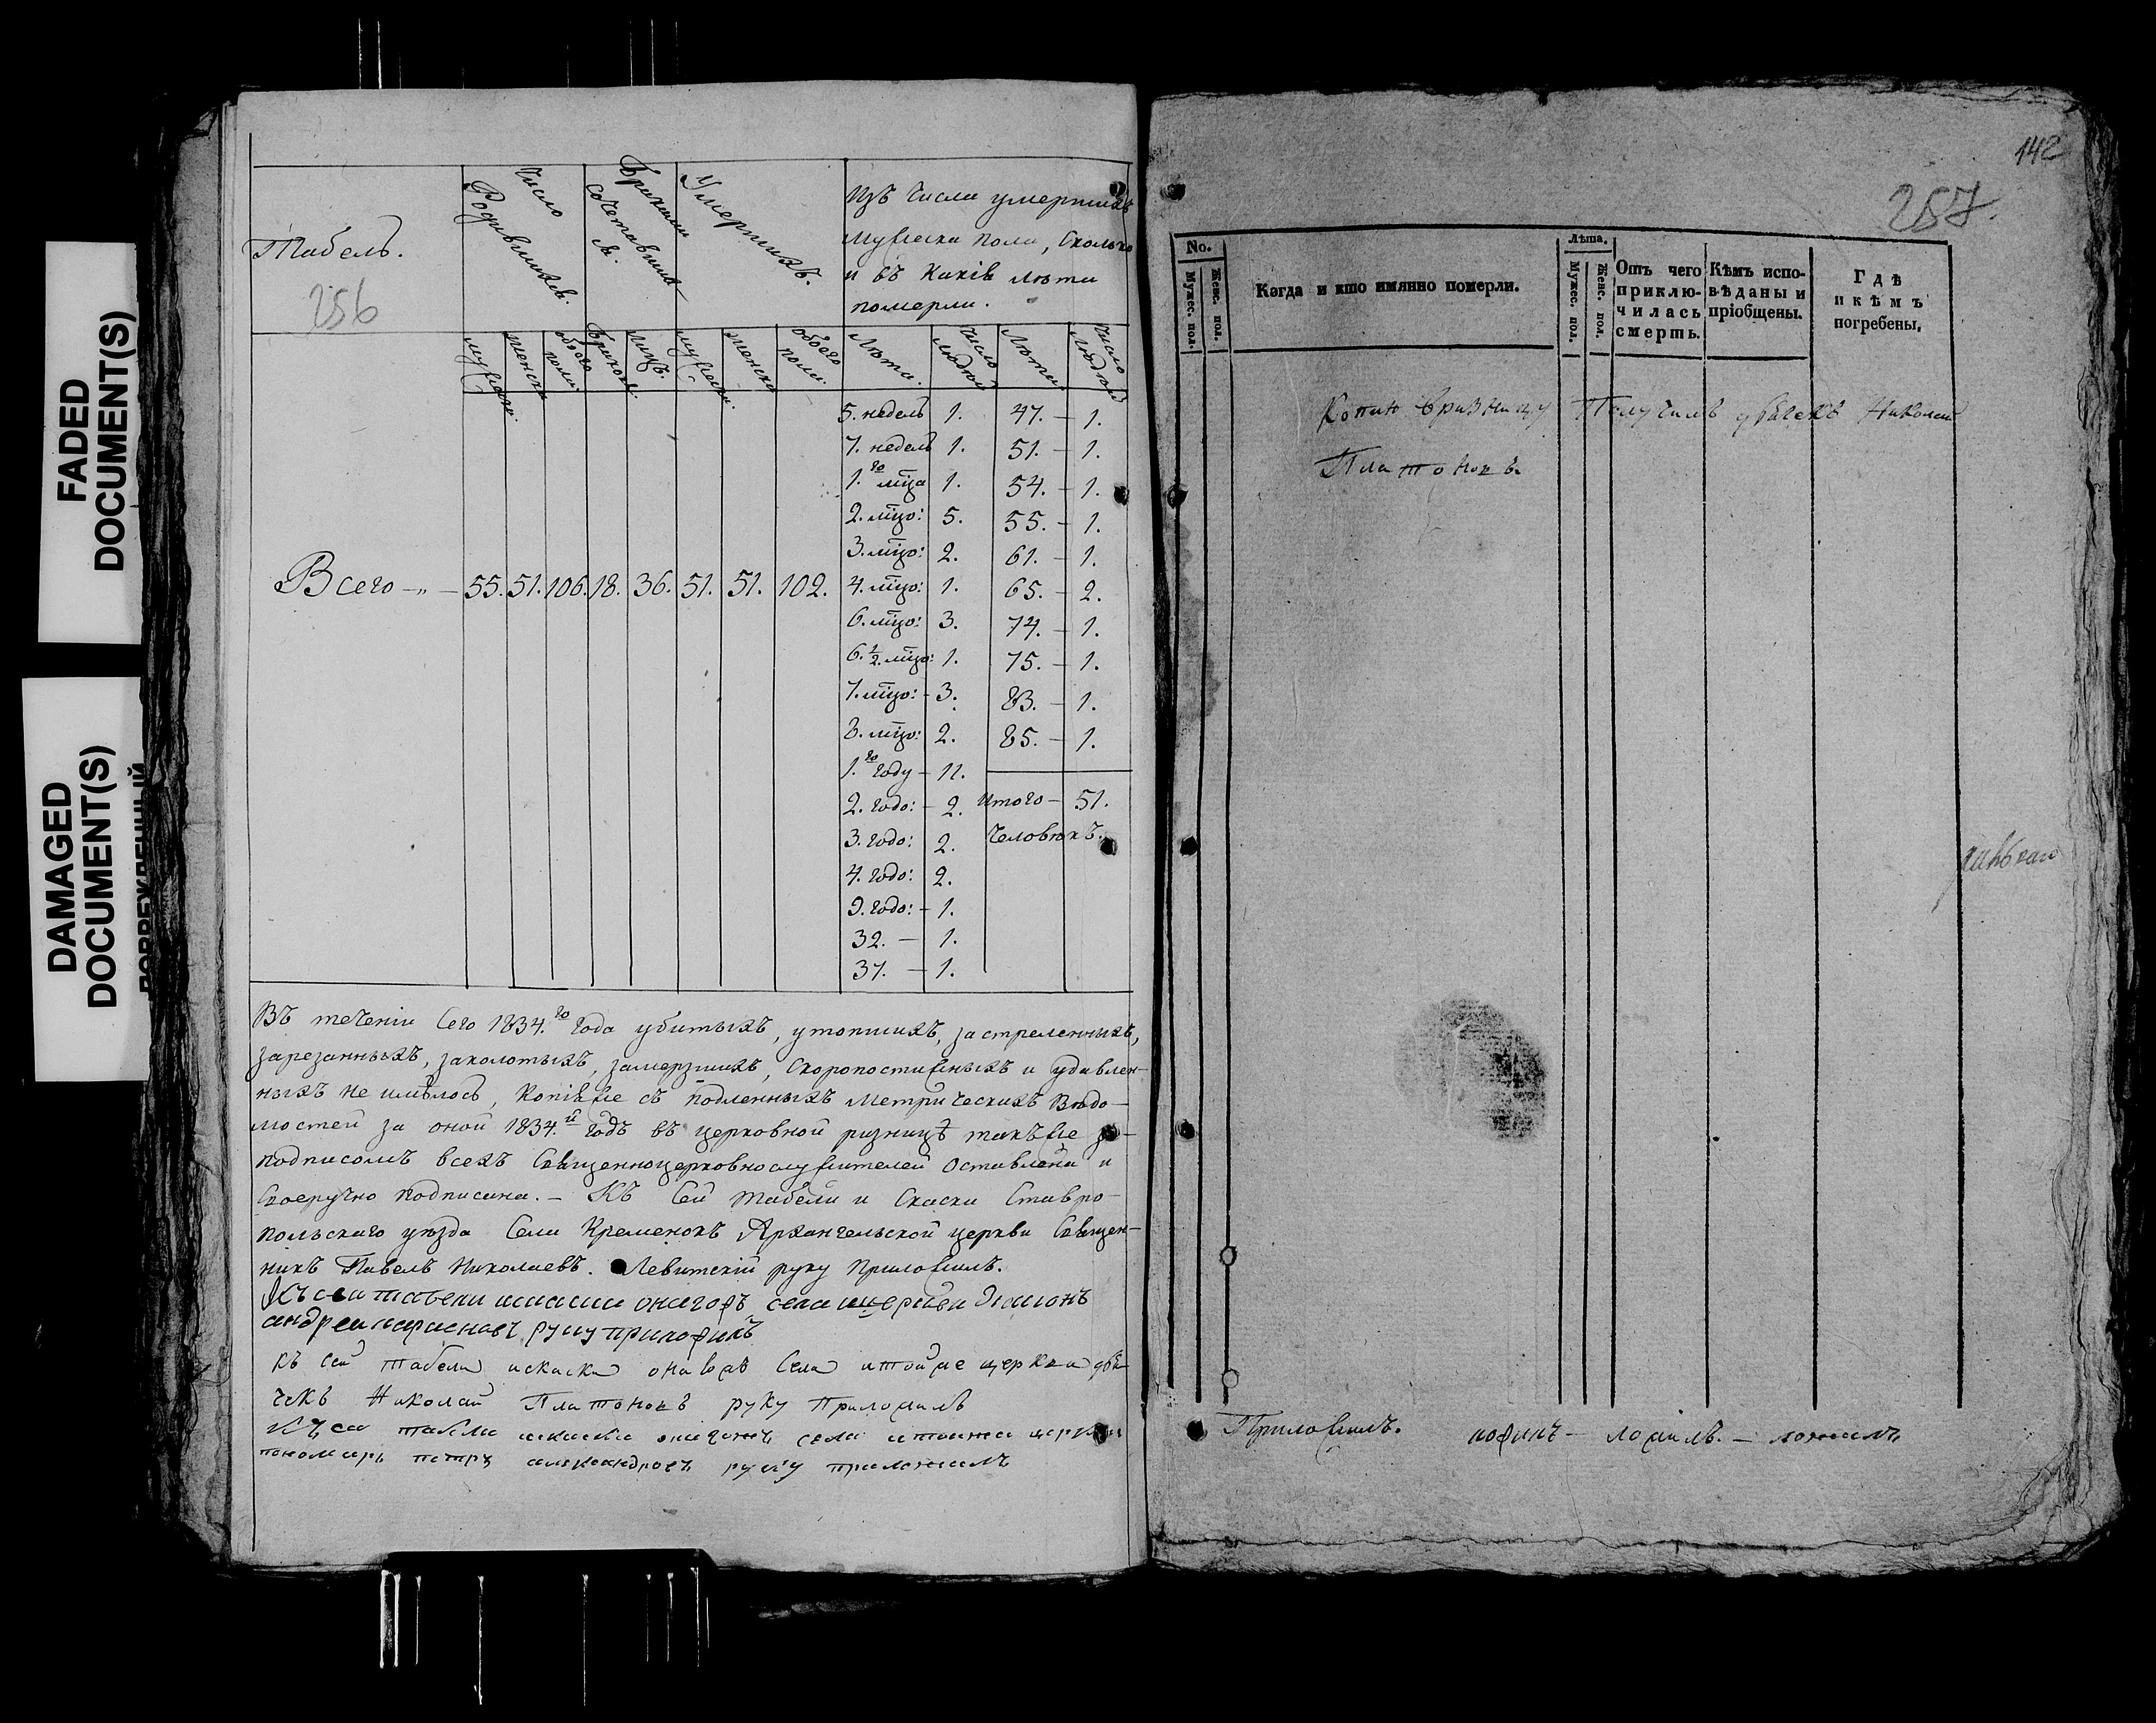 FADED
DOCUMENT(S)
DAMAGED
DOCUMENT(S)
Табель.
256
Число Родившихся.
Бракомъ сочетавшихся.
Умершихъ.
Изъ числа умершихъ
мужеска пола, сколько
и въ какія лѣта
померли.
мужеск. женска обоего пола. браковъ. лицъ. мужеск. женска обоего пола. Лѣта. Число людей Лѣта. Число людей
5. недель 1. 47. — 1.
7. недель 1. 51. — 1.
1.го мца 1. 54. — 1.
2. мцо: 5. 55. — 1.
3. мцо: 2. 61. — 1.
Всего — 55. 51. 106. 18. 36. 51. 51. 102. 4. мцо: 1. 65. — 2.
6. мцо: 3. 74. — 1.
6. 1/2. мцо: 1. 75. — 1.
7. мцо: — 3. 83. — 1.
8. мцо: 2. 85. — 1.
1.го году — 11.
2. годо: — 2. Итого — 51.
3. годо: 2. человѣкъ.
4. годо: 2.
9. годо: — 1.
32. — 1.
37. — 1.
Въ теченіи сего 1834.го года убитыхъ, утопшихъ, застреленныхъ,
зарезанныхъ, заколотыхъ, замерзшихъ, скоропостижныхъ и удавлен-
ныхъ не имѣлось, копія же съ подленныхъ метрическихъ вѣдо-
мостей за оной 1834.й годъ въ церковной ризницѣ такъ же за
подписомъ всехъ священноцерковнослужителей оставлена и
своеручно подписана. — Къ сей табели и скаски Ставро-
польскаго уѣзда села Кременокъ Архангельской церкви священ-
никъ Павелъ Николаевъ. Левитскій руку приложилъ.
Къ сеи табели села церкви диаконъ
андреи руку приложилъ
къ сей табели искаски села итойже церкви дья-
чекъ Николай Платоновъ руку Приложилъ
Къ сеи села церкви
пономарь петръ александровъ руку приложилъ
142
257.
No.
Мужес. пол.
Женс. пол.
Когда и кто имянно померли.
Лѣта.
Мужес. пол.
Женс. пол.
Отъ чего
приклю-
чилась
смерть.
Кѣмъ испо-
вѣданы и
пріобщены.
Гдѣ
и кѣмъ
погребены.
Копию вризницу Получилъ дьячекъ Николай
Платоновъ.
Приложилъ. ложилъ. — ложилъ